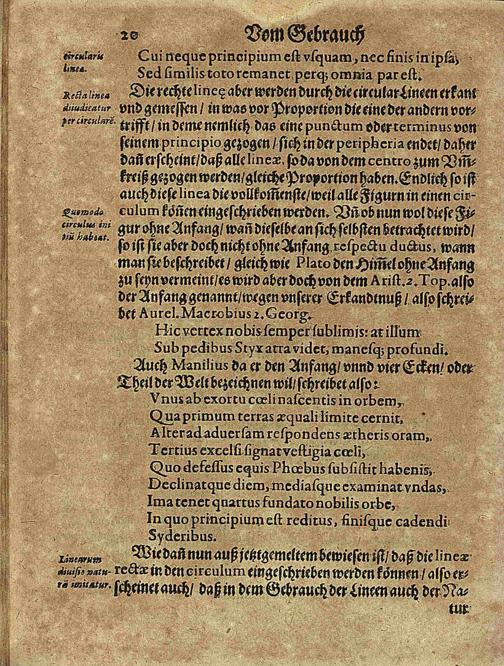 20 Vom Gebrauch
circularis
linea.
Cui neque principium est vsquam, nec finis in ipsa,
Sed similis toto remanet perq; omnia par est.
Recta linea
diiudicatur
per circularē.
Die rechte lineę aber werden durch die circular Lineen erkant
vnd gemessen / in was vor Proportion die eine der andern vor-
trifft / in deme nemlich das eine punctum oder terminus von
seinem principio gezogen / sich in der peripheria endet / daher
dañ erscheint / daß alle lineæ, so da von dem centro zum Vm̃-
kreiß gezogen werden / gleiche Proportion haben. Endlich so ist
auch diese linea die vollkom̃enste / weil alle Figurn in einen cir-
Quomodo
circulus ini
tiū habeat.
culum köñen eingeschrieben werden. Vñ ob nun wol diese Fi-
gur ohne Anfang / wañ dieselbe an sich selbsten betrachtet wird /
so ist sie aber doch nicht ohne Anfang respectu ductus, wann
man sie beschreibet / gleich wie Plato den Him̃el ohne Anfang
zu seyn vermeint / es wird aber doch von dem Arist. 2. Top. also
der Anfang genannt / wegen vnserer Erkandtnuß / also schrei-
bet Aurel. Macrobius 2. Georg.
Hic vertex nobis semper sublimis: at illum
Sub pedibus Styx atra videt, manesq; profundi.
Auch Manilius da er den Anfang / vnnd vier Ecken / oder
Theil der Welt bezeichnen wil / schreibet also:
Vnus ab exortu cœli nascentis in orbem,
Qua primum terras æquali limite cernit,
Alter ad aduersam respondens ætheris oram,
Tertius excelsi signat vestigia cœli,
Quo defessus equis Phœbus subsistit habenis,
Declinatque diem, mediasque examinat vndas,
Ima tenet quattus fundato nobilis orbe,
In quo principium est reditus, finisque cadendi
Syderibus.
Linearum
diuisio natu-
rā imitatur.
Wie dañ nun auß jetztgemeltem bewiesen ist / daß die lineæ
rectæ in den circulum eingeschrieben werden können / also er-
scheinet auch / daß in dem Gebrauch der Lineen auch der Na-
tur